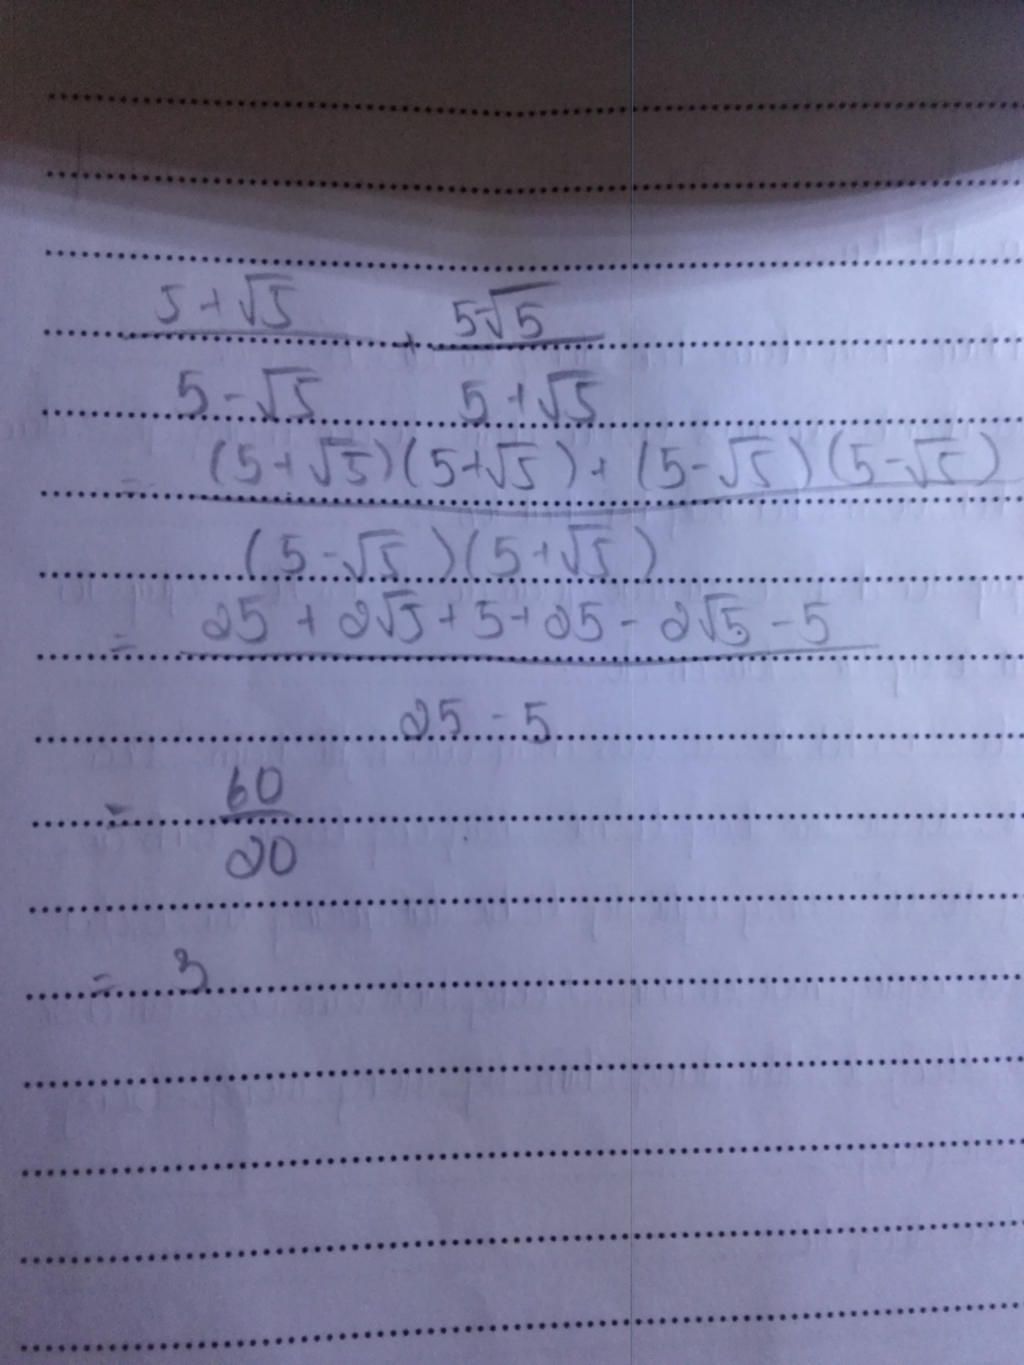 5+√5 + 5-√5
5-√5 5+√5
= (5+√5)(5+√5)+(5-√5)(5-√5)
(5-√5)(5+√5)
= 25+2√5+5+25-2√5-5
25-5
= 60
20
= 3